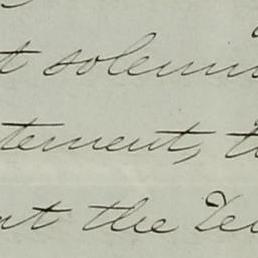 t solemn
tement, t
nt the Te